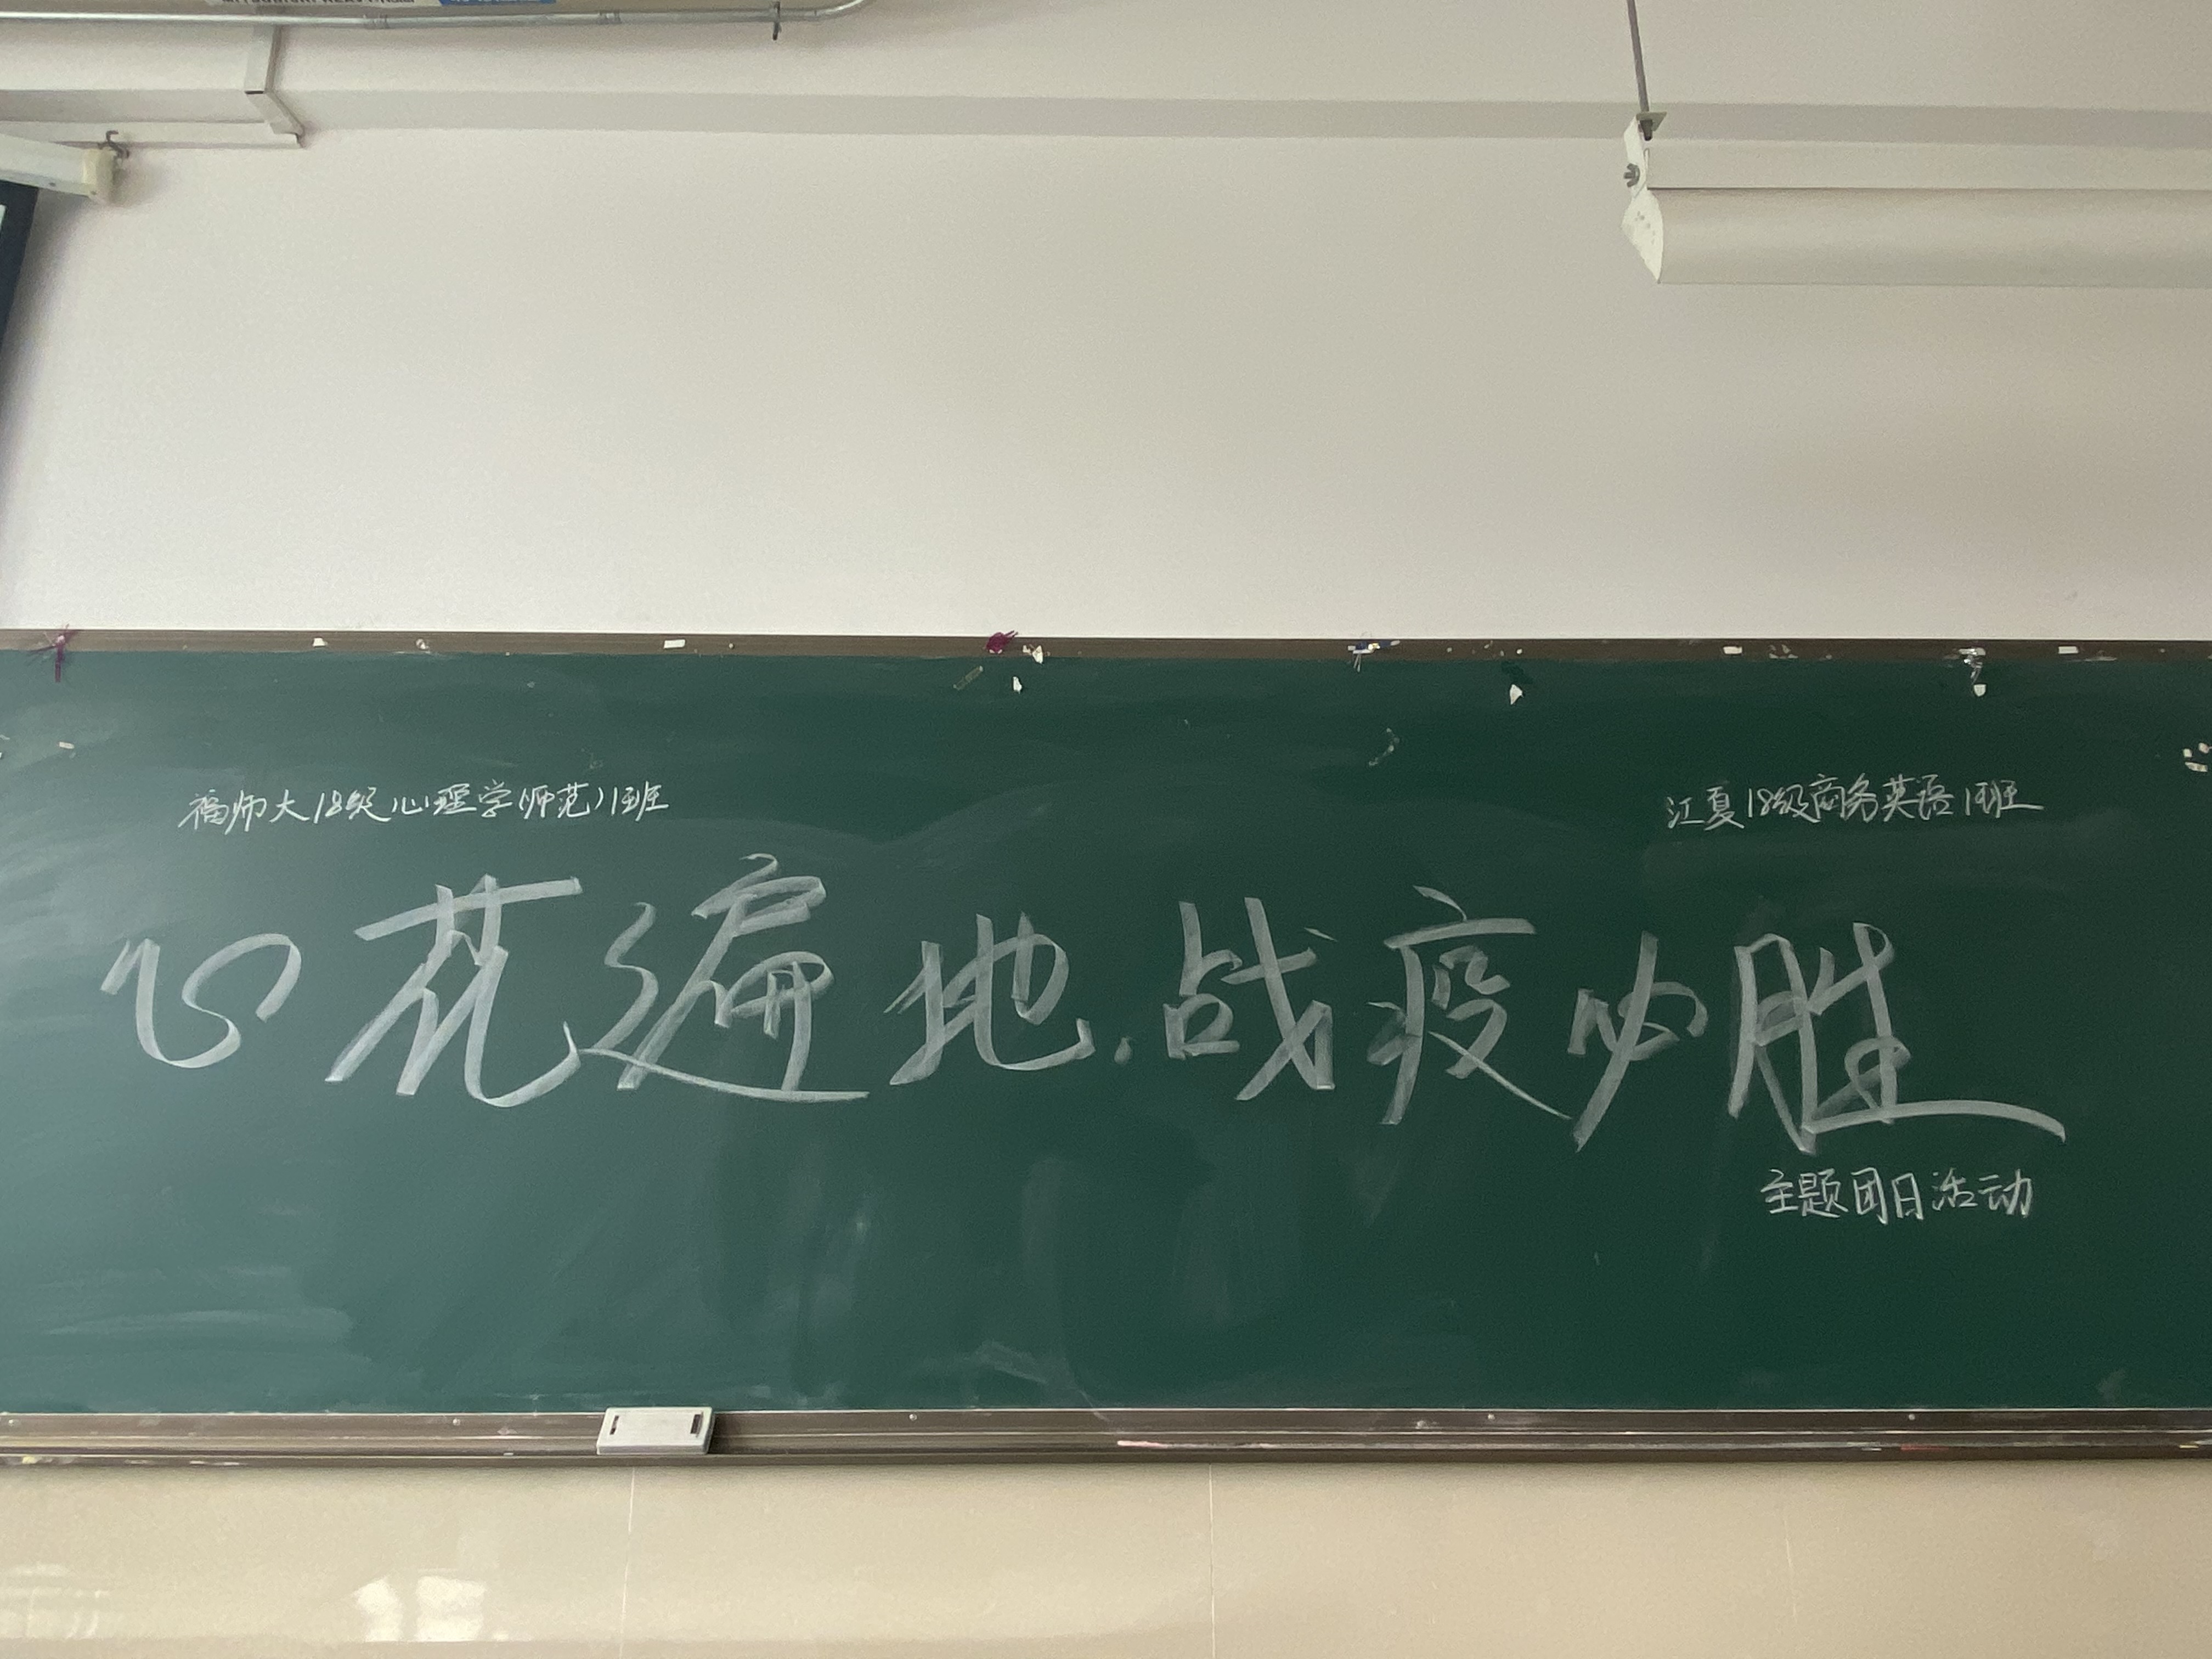 福师大18级心理学(师范)1班
江夏18级商务英语1班
心花遍地.战疫必胜
主题团日活动